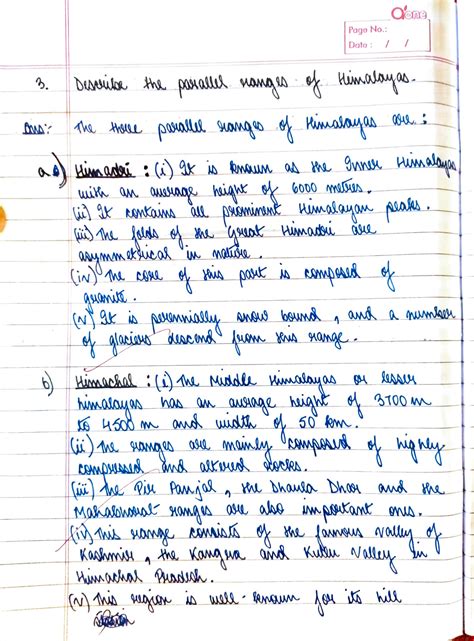 acne
Page No.:
Date : / /
3. Describe the parallel ranges of Himalayas.
Ans:- The three parallel ranges of Himalayas are :
a) Himadri : (i) It is known as the Inner Himalayas
with an average height of 6000 metres.
(ii) It contains all prominent Himalayan peaks.
(iii) The folds of the Great Himadri are
asymmetrical in nature.
(iv) The core of this part is composed of
granite.
(v) It is perennially snow bound, and a number
of glaciers descend from this range.
b) Himachal : (i) The Middle Himalayas or lesser
himalayas has an average height of 3700 m
to 4500 m and width of 50 km.
(ii) The ranges are mainly composed of highly
compressed and altered rocks.
(iii) The Pir Panjal, the Dhaula Dhar and the
Mahabharat ranges are also important ones.
(iv) This range consists of the famous valley of
Kashmir, the Kangra and Kullu Valley in
Himachal Pradesh.
(v) This region is well-known for its hill